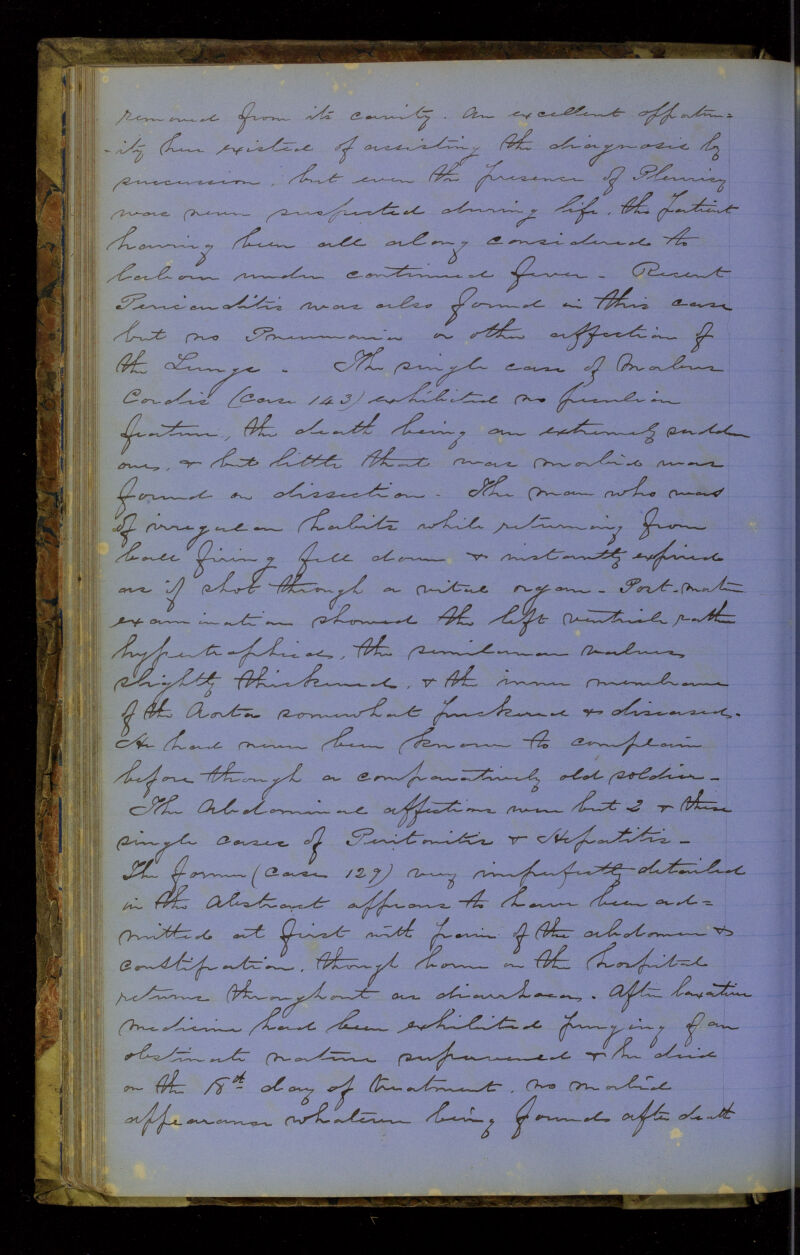 removed from its cavity. An excellent opportun=
-ity here existed of assisting the diagnosis by
succussion, but even the presence of Pleurisy
was never suspected during life, the patient
having been all along considered to
labour under continued fever - Recent
Pericarditis was also found in this case
but no Pneumonia or other affection of
the Lungs - The single case of Morbus
Cordis (Case 143) exhibited no peculiar
feature, the death being an extremely sudden
one, & but little that was morbid was
found on dissection - The man who was
of irregular habits while returning from
ball firing fell down & instantly expired
as if shot through a vital organ - Post-mortem
examination showed the left ventricle rather
hypertrophied, the semilunar valves
slightly thickened, & the inner membrane
of the Aorta somewhat puckered & diseased.
He had never been known to complain
before though a comparatively old soldier -
The Abdominal affections were but 2 & these
single cases of Peritonitis & Hepatitis -
The former (case 129) very imperfectly detailed
in the Abstract appears to have been ad=
mitted at first with pain of the abdomen &
constipation, though borne on the hospital
returns throughout as diarrhoea. After laxative
medicine had been exhibited purging of an
obstinate nature supervened & he died
on the 18th day of treatment, no morbid
appearance whatever being found after death